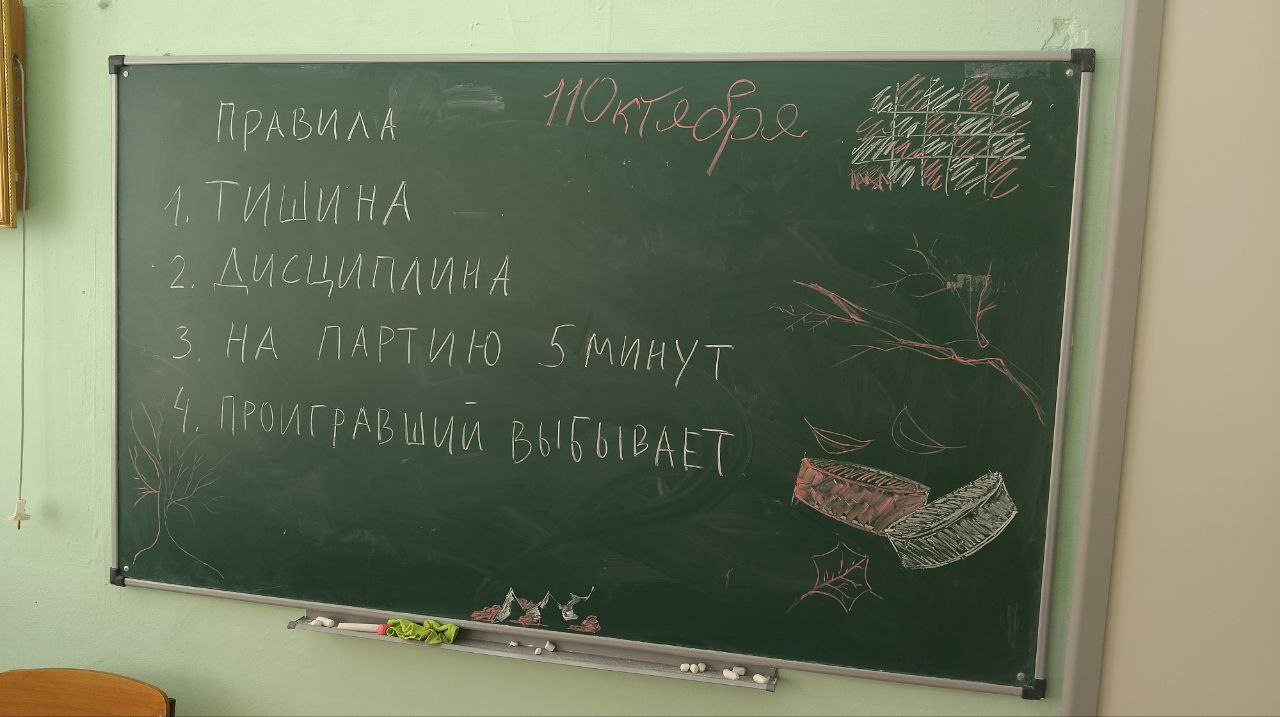 11 Октября
Правила
1. ТИШИНА
2. ДИСЦИПЛИНА
3. НА ПАРТИЮ 5 МИНУТ
4. ПРОИГРАВШИЙ ВЫБЫВАЕТ